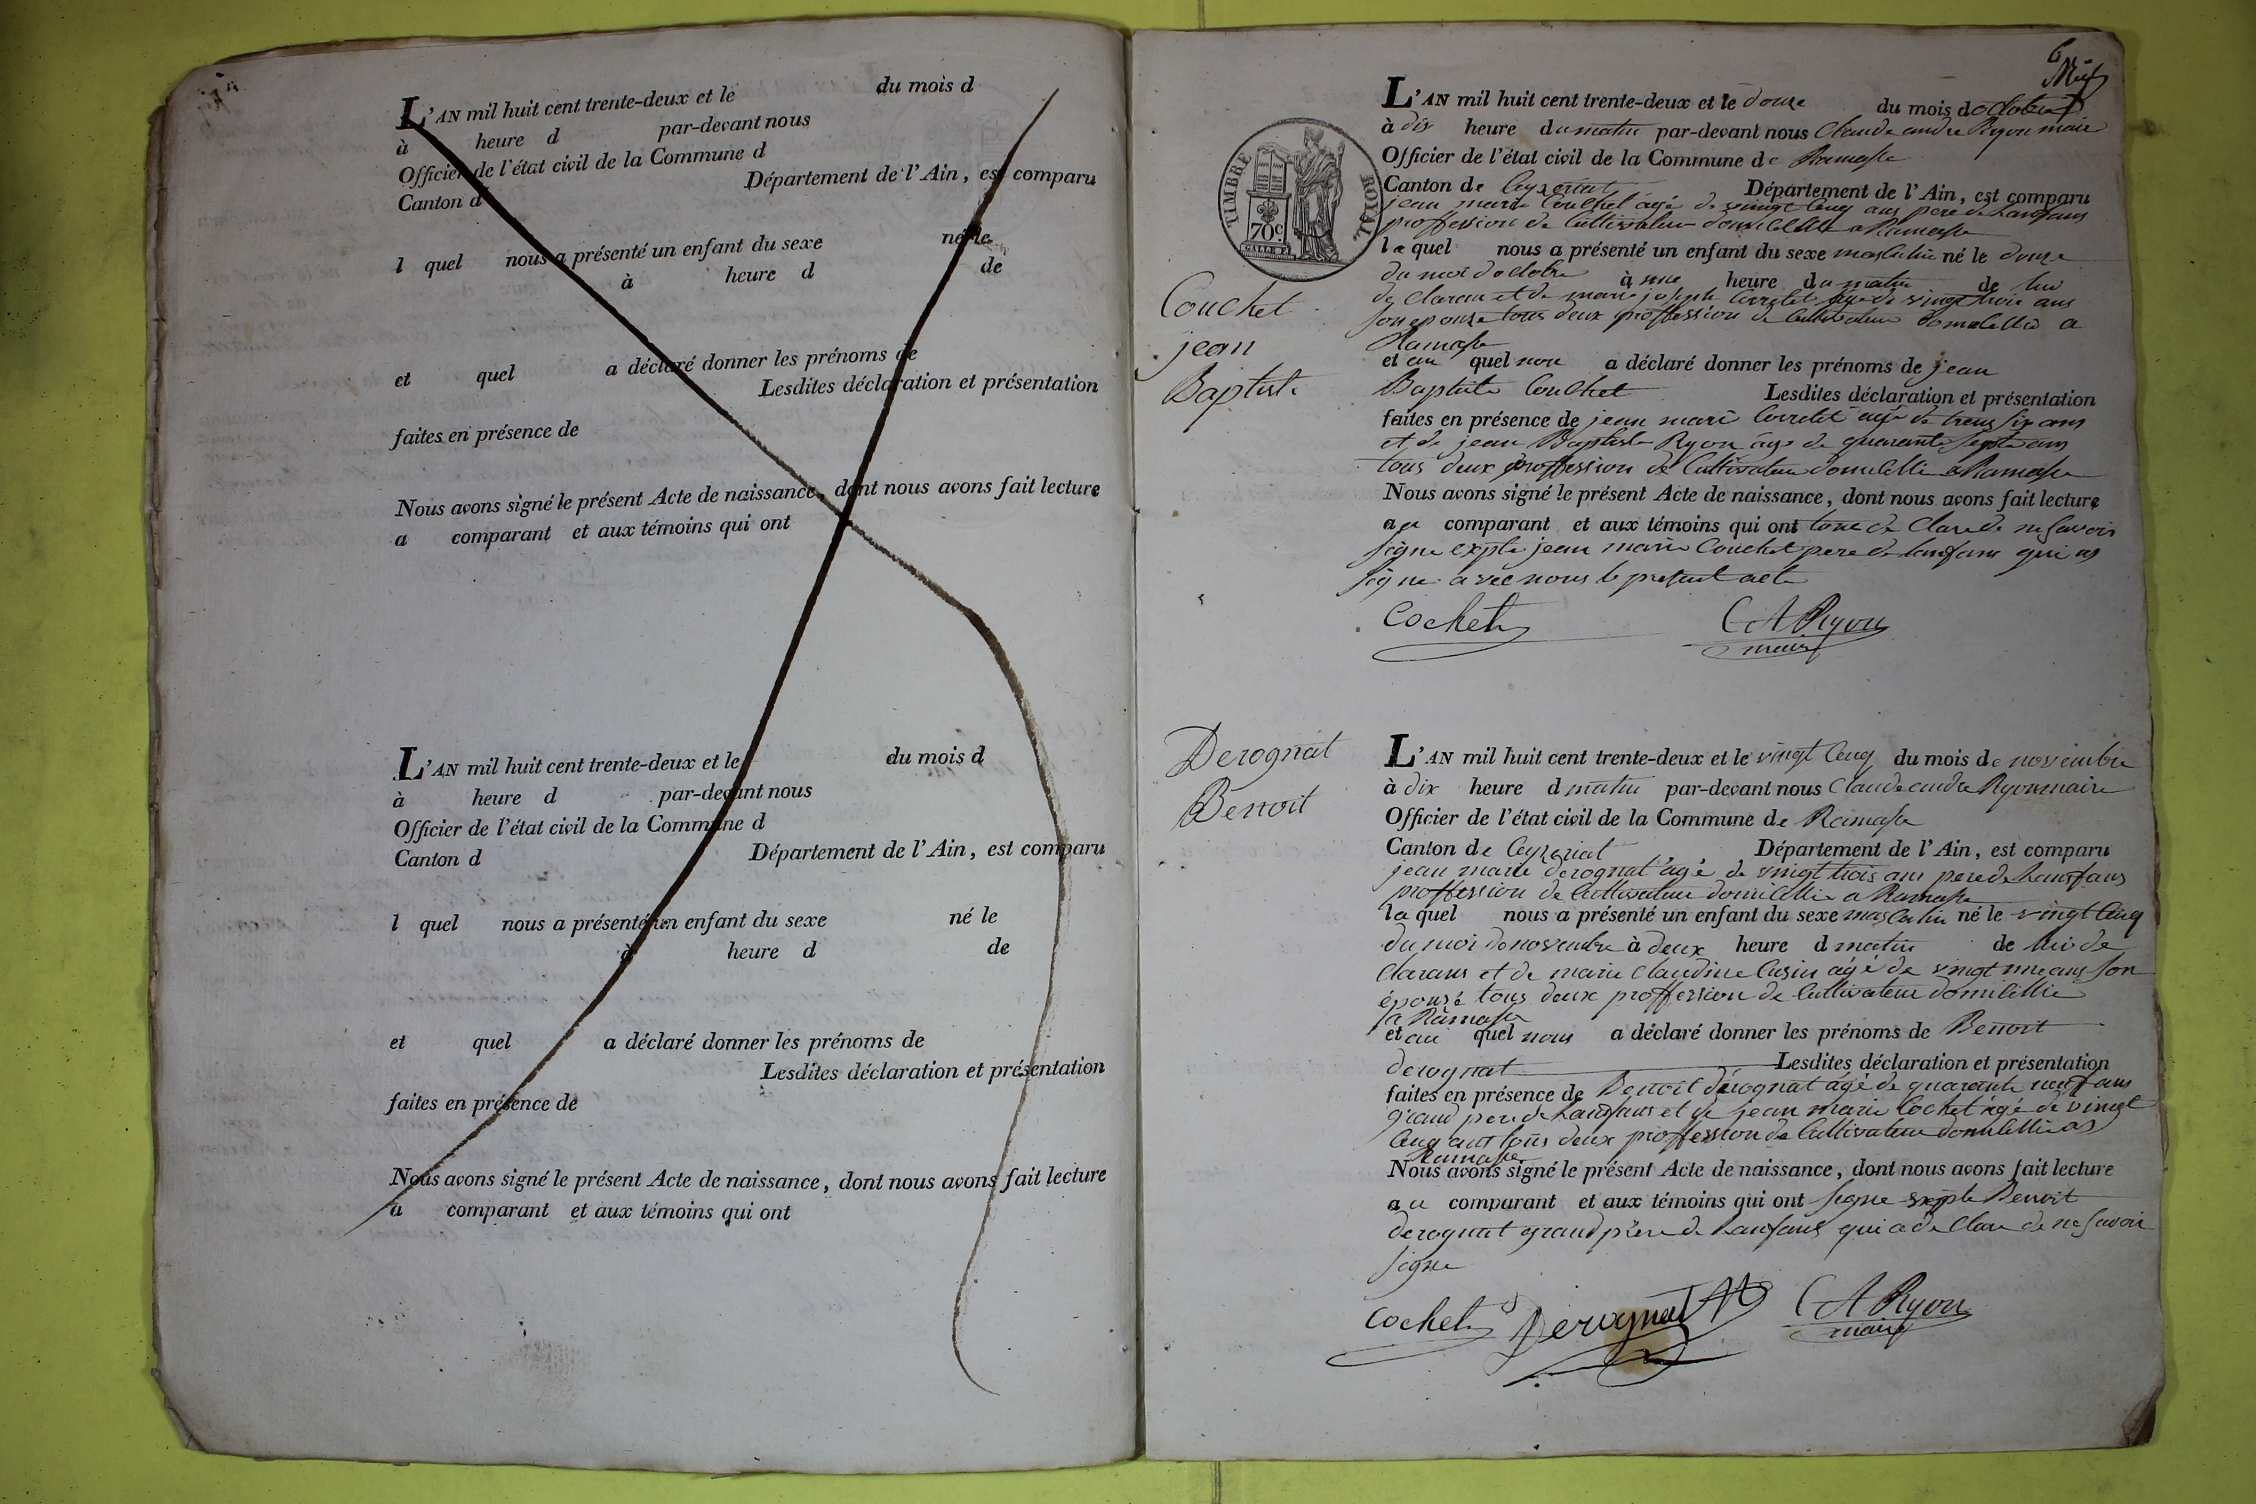 L'AN mil huit cent trente-deux et le du mois d
à heure d par-devant nous
Officier de l'état civil de la Commune d
Canton d Département de l'Ain, est comparu
l quel nous a présenté un enfant du sexe né le
à heure d de
et quel a déclaré donner les prénoms de
Lesdites déclaration et présentation
faites en présence de
Nous avons signé le présent Acte de naissance, dont nous avons fait lecture
a comparant et aux témoins qui ont
L'AN mil huit cent trente-deux et le du mois d
à heure d par-devant nous
Officier de l'état civil de la Commune d
Canton d Département de l'Ain, est comparu
l quel nous a présenté un enfant du sexe né le
à heure d de
et quel a déclaré donner les prénoms de
Lesdites déclaration et présentation
faites en présence de
Nous avons signé le présent Acte de naissance, dont nous avons fait lecture
a comparant et aux témoins qui ont
6
TIMBRE ROYAL
70c
Couchet
jean
Baptiste
L'AN mil huit cent trente-deux et le douze du mois doctobre
à dix heure du matin par-devant nous Claude andre Ryon maire
Officier de l'état civil de la Commune de Ramasse
Canton de Ceyzeriat Département de l'Ain, est comparu
jean marie Couchet agé de vingt Cenq ans pere de Lanfans
proffession de Cultivateur domicillie a Ramasse
le quel nous a présenté un enfant du sexe masculin né le douze
du moi doctobre à une heure du matin de lui
de claran et de marie joseph Corretet age de vingt trois ans
son epouse tous deux proffession de Cultivateur domicillie a
Ramasse
et au quel nou a déclaré donner les prénoms de jean
Baptiste Couchet Lesdites déclaration et présentation
faites en présence de jean marie Corretet age de trens six ans
et de jean Baptiste Ryon age de quarante septe ans
tous deux proffession de Cultivateur domicillie a Ramasse
Nous avons signé le présent Acte de naissance, dont nous avons fait lecture
au comparant et aux témoins qui ont tous de Clare de ne savoir
signe expte jean marie Couchet pere de lanfans qui as
signe avec nous le present acte
Cochet CA Ryon
maire
Derognat
Benoit
L'AN mil huit cent trente-deux et le vingt Cenq du mois de novembre
à dix heure d matin par-devant nous Claude andre Ryon maire
Officier de l'état civil de la Commune de Ramasse
Canton de Ceyzeriat Département de l'Ain, est comparu
jean marie derognat âgé de vingt trois ans pere de Lanfans
proffession de Cultivateur domicillie a Ramasse
le quel nous a présenté un enfant du sexe masculin né le vingt Cenq
du moi de novembre à deux heure d matin de lui de
clarans et de marie claudine Cusin âgé de vingt une ans son
épouse tous deux proffession de Cultivateur domicillie
a Ramasse
et au quel nous a déclaré donner les prénoms de Benoit
derognat Lesdites déclaration et présentation
faites en présence de Benoit dérognat âgé de quarante neuf ans
grand pere de Lanfans et de jean marie Cochet âgé de vingt
Cenq ans tous deux proffession de Cultivateur domicillie as
Ramasse
Nous avons signé le présent Acte de naissance, dont nous avons fait lecture
au comparant et aux témoins qui ont signe expte Benoit
derognat grand père de Lanfans qui a de Clare de ne savoir
signe
Cochet Derognat CA Ryon
maire